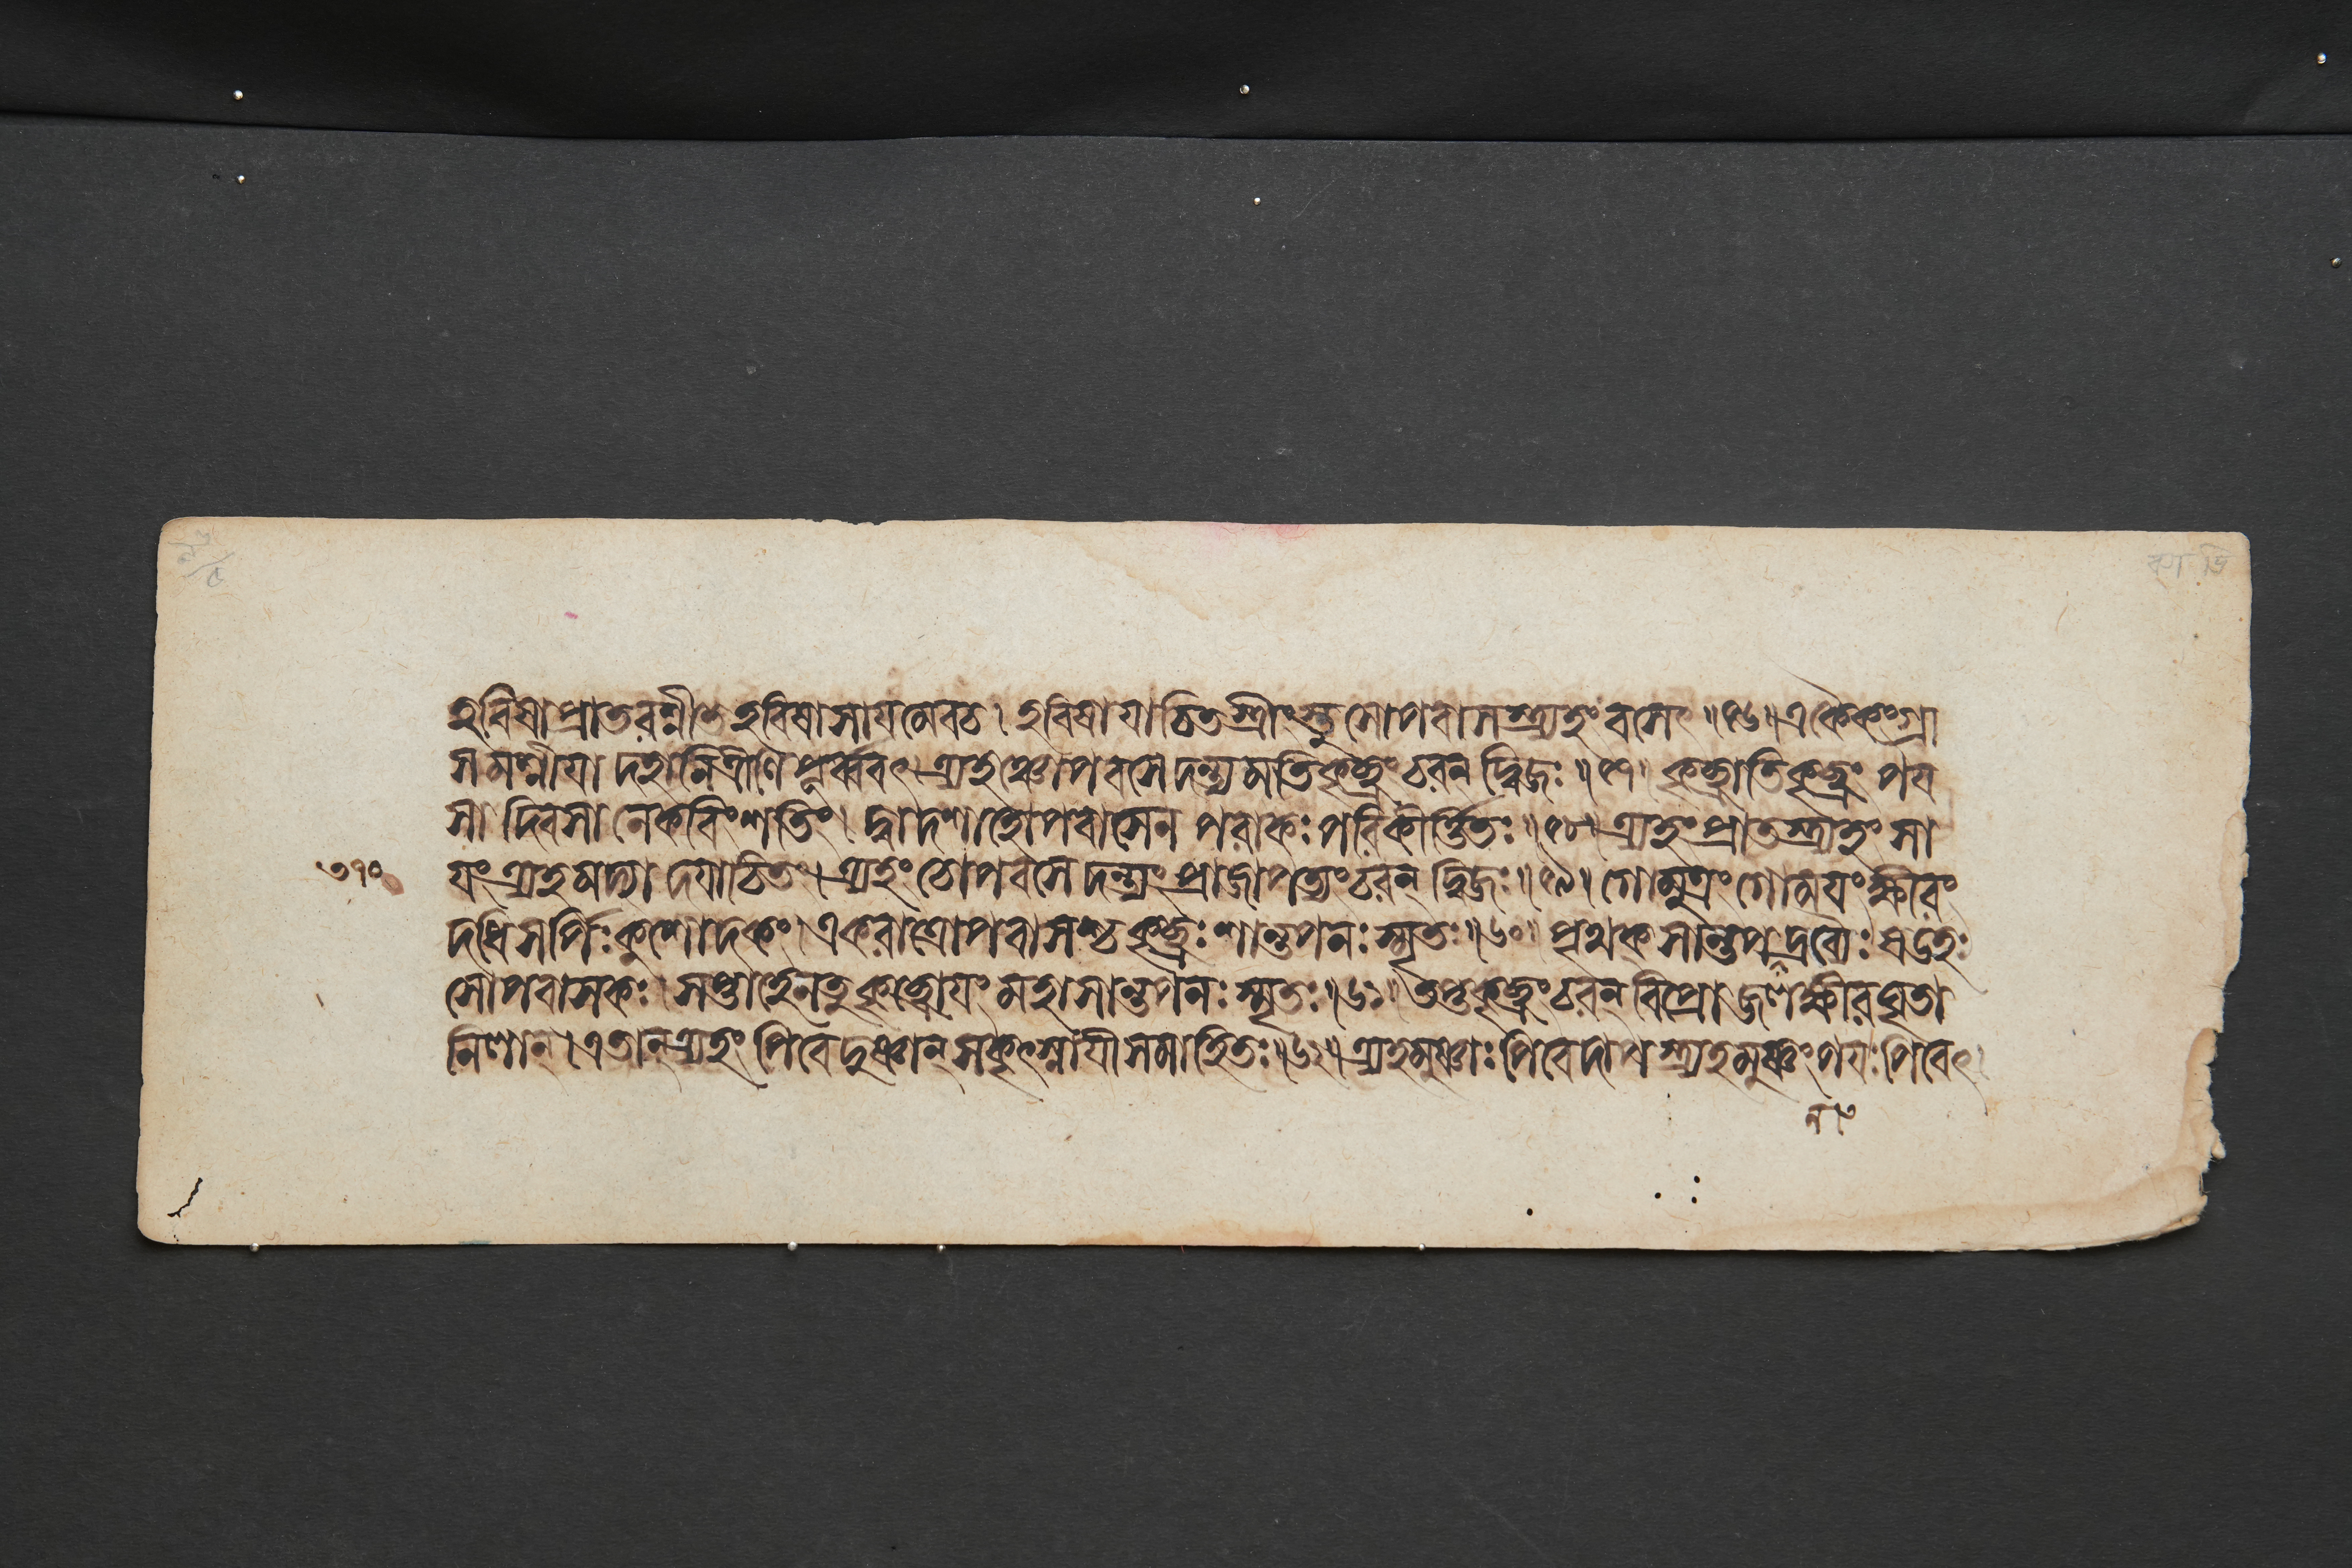 হবিষা প্রাতরশ্নীত হবিষা সাযমেবচ। হবিষা যাচিতস্ত্রীংস্তু সোপবাসস্ত্র্যহং বসেৎ॥৫৬॥একৈকং গ্রা
সমশ্নীযা দহানি ত্রীণি পূর্ব্ববৎ। ত্র্যহঞ্চোপবসে দন্ত্য মতিকৃচ্ছ্রং চরন্ দ্বিজঃ॥৫৭॥ কৃচ্ছ্রাতিকৃচ্ছ্রং পয
সা দিবসা নেকবিংশতিং। দ্বাদশাহোপবাসেন পরাকঃ পরিকীর্ত্তিতঃ॥৫৮॥ ত্র্যহং প্রাতস্ত্র্যহং সা
৩৭০ যং ত্র্যহমদ্যা দযাচিতং। ত্র্যহং চোপবসে দন্ত্যং প্রাজাপত্যং চরন্ দ্বিজঃ॥৫৯॥ গোমূত্রং গোমযং ক্ষীরং
দধি সর্পিঃ কুশোদকং। একরাত্রোপবাসশ্চ কৃচ্ছ্রঃ শান্তপনঃ স্মৃতঃ॥৬০॥ পৃথক্ সান্তপদ্রব্যৈঃ ষডহঃ
সোপবাসকঃ। সপ্তাহেন তু কৃচ্ছ্রোযং মহাসান্তপনঃ স্মৃতঃ॥৬১॥ তপ্তকৃচ্ছ্রং চরন্ বিপ্রো জলক্ষীরঘৃতা
নিলান্। এতান্ ত্র্যহং পিবে দুষ্ণান্ সকৃৎস্নাযী সমাহিতঃ॥৬২॥ ত্র্যহমুষ্ণাঃ পিবেদাপস্ত্র্যহমুষ্ণং পযঃ পিবেৎ।
ন ৫